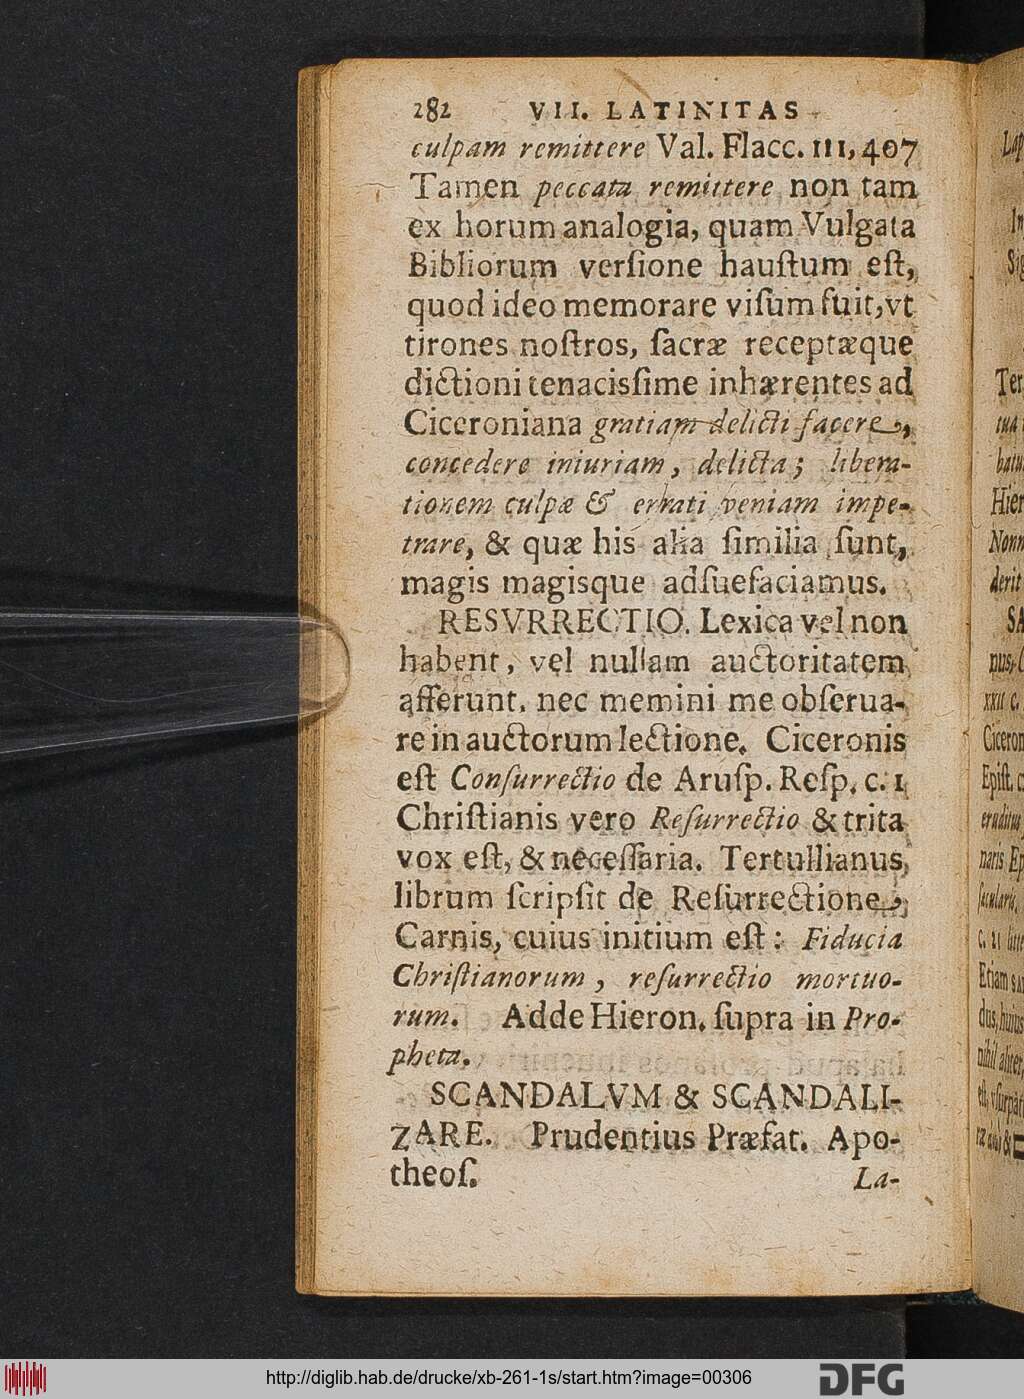 282 VII. LATINITAS
culpam remittere Val. Flacc. III, 407
Tamen peccata remittere non tam
ex horum analogia, quam Vulgata
Bibliorum verſione hauſtum eſt,
quod ideo memorare viſum fuit, vt
tirones noſtros, ſacræ receptæque
dictioni tenacisſime inhærentes ad
Ciceroniana gratiam delicti facere,
concedere iniuriam, delicta; libera-
tionem culpæ & errati veniam impe-
trare, & quæ his alia ſimilia ſunt,
magis magisque adſuefaciamus.
RESVRRECTIO. Lexica vel non
habent, vel nullam auctoritatem
afferunt, nec memini me obſerua-
re in auctorum lectione. Ciceronis
eſt Conſurrectio de Aruſp. Reſp. c. 1
Chriſtianis vero Reſurrectio & trita
vox eſt, & neceſſaria. Tertullianus,
librum ſcripſit de Reſurrectione
Carnis, cuius initium eſt: Fiducia
Chriſtianorum, reſurrectio mortuo-
rum. Adde Hieron. ſupra in Pro-
pheta.
SCANDALVM & SCANDALI-
ZARE. Prudentius Præfat. Apo-
theoſ.
La-
Ter
Hier
Nonn
derit
SA
pus,
xxii c.
Ciceron
Epiſt. c.
eruditus
naris Ep
Etiam
nihil aliter,
http://diglib.hab.de/drucke/xb-261-1s/start.htm?image=00306
DFG